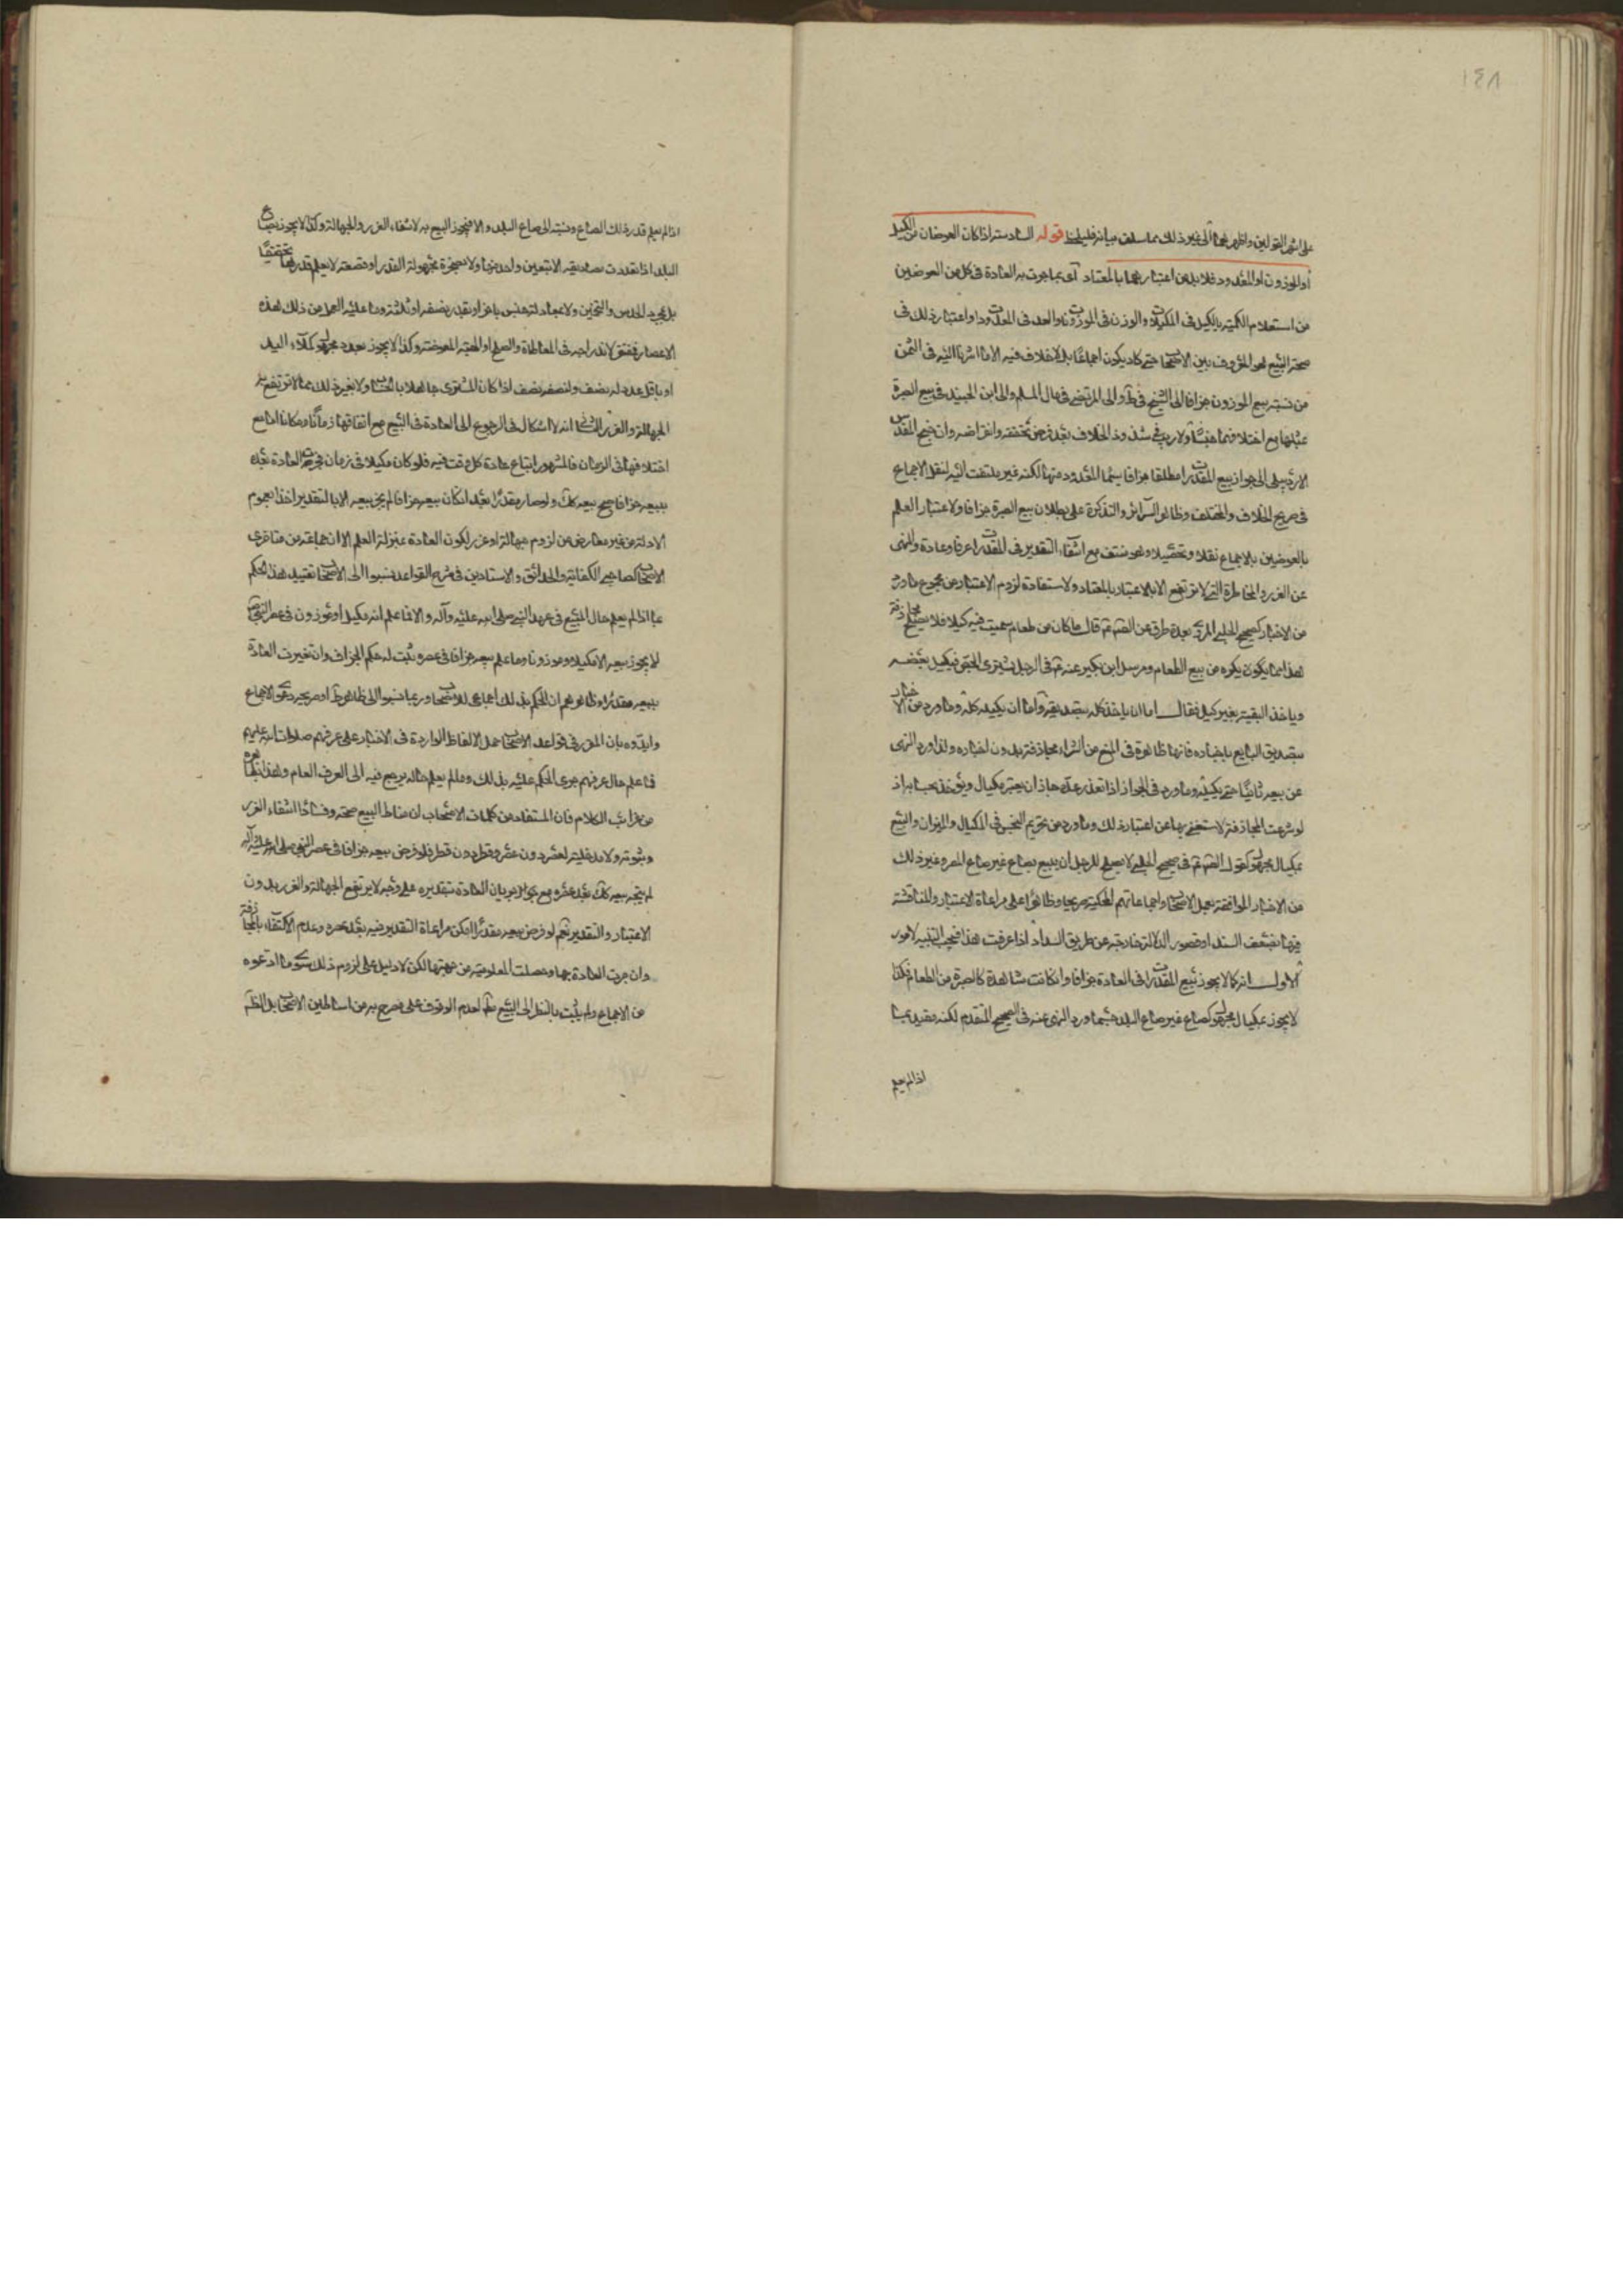 ١٤٨
على اشهر القولين واظهرهما الى غير ذلك مما سلف بيانه فليلحظ قوله السادسة اذا كان العوضان من المكيل
أو الموزون او المعدود فلا بد من اعتبارهما بالمعتاد أى بما جرت به العادة فى كل من العوضين
من استعلام الكمية بالكيل فى المكيلات والوزن فى الموزونات والعد فى المعدودات واعتبار ذلك فى
صحة البيع هو المعروف بين الاصحاب حتى كاد يكون اجماعًا بل لا خلاف فيه الا ما اشرنا اليه فى الثمن
من نسبة بيع الموزون جزافا الى الشيخ فى ط والى المرتضى فى مال السلم والى ابن الجنيد فى بيع الصبرة
بمثلها مع اختلافهما جنسًا ولا ريب فى شذوذ الخلاف بعد فرض تحققه وانقراضه وان جنح المقدس
الاردبيلى الى جواز بيع المقدرات مطلقا جزافا سيما المعدود منها لكنه غير ملتفت اليه لنقل الاجماع
فى صريح الخلاف والمختلف وظاهر السرائر والتذكرة على بطلان بيع الصبرة جزافا ولاعتبار العلم
بالعوضين بالاجماع نقلا وتحصيلا وهو منتف مع انتفاء التقدير فى المقدرات عرفا وعادة وللنهى
عن الغرر والمخاطرة التى لا ترتفع الا بالاعتبار بالمعتاد ولاستفادة لزوم الاعتبار من مجموع ما ورد
من الاخبار كصحيح الحلبى المروى بعدة طرق عن الصم قال ما كان من طعام سميت فيه كيلا فلا يصلح مجازفة
هذا مما يكون يكره من بيع الطعام ومرسل ابن بكير عنه فى الرجل يشترى الجص فيكيل بعضه
وياخذ البقية بغير كيل فقال اما ان ياخذ كله بتصديقه واما ان يكيله كله وما ورد من الاخبار
بتصديق البايع باخباره فانها ظاهرة فى المنع من الشراء مجازفة بدون اخباره ولما ورد النهى
عن بيعه ثانيًا حتى يكيله وما ورد فى الجواز اذا تعذر عده جاز ان يعتبر مكيال ويؤخذ بحسابه اذ
لو شرعت المجازفة لاستغنى بها عن اعتبار ذلك وما ورد من تحريم البخس فى المكيال والميزان والبيع
بمكيال مجهول كقول الصم فى صحيح الحلبى لا يصلح للرجل ان يبيع بصاع غير صاع المصر وغير ذلك
من الاخبار الموافقة لعمل الاصحاب واجماعاتهم المحكية صريحا وظاهرًا على مراعاة الاعتبار والمناقشة
فيها بضعف السند او قصور الدلالة خارجة عن طريق السداد اذا عرفت هذا فيجب التنبيه لامور
الاول انه كما لا يجوز بيع المقدرات فى العادة جزافا وان كانت مشاهدة كالصبرة من الطعام فكذا
لا يجوز بمكيال مجهول كصاع غير صاع البلد حسبما ورد النهى عنه فى الصحيح المتقدم لكنه مقيد بما
اذا لم يعلم
اذا لم يعلم قدر ذلك الصاع ونسبته الى صاع البلد والا فيجوز البيع به لانتفاء الغرر والجهالة وكذا لا يجوز بصاع
البلد اذا تعددت مصاديقه الا بتعيين واحد منها ولا بصخرة مجهولة القدر او قصعة لا يعلم قدرها تحقيقًا
بل بمجرد الحدس والتخمين
الاعصار فيتحقق لاندراجه فى المعاطاة والصلح او الهبة المعوضة وكذا لا يجوز بعدد مجهول كملاء اليد
الجهالة والغرر الثانى انه لا اشكال فى الرجوع الى العادة فى البيع مع اتفاقها زمانًا ومكانا اما مع
اختلافها فى الزمان فالمشهور اتباع عادة كل وقت فيه فلو كان مكيلا فى زمان فجرت العادة بعده
ببيعه جزافا صح بيعه كك ولو صار مقدرًا بعد ان كان بيعه جزافا لم يجز بيعه الا بالتقدير اخذا بعموم
الادلة من غير معارض من لزوم جهالة او غرر لكون العادة بمنزلة العلم الا ان جماعة من متاخرى
الاصحاب كصاحبى الكفاية والحدائق والاستاد فى شرح القواعد نسبوا الى الاصحاب تقييد هذا الحكم
بما اذا لم يعلم حال المبيع فى عهد النبى صلى الله عليه وآله والا فما علم انه مكيل او موزون فى عصر النبى ص
لا يجوز بيعه الا مكيلا وموزونا وما علم بيعه جزافا فى عصره يثبت له حكم الجزاف وان تغيرت العادة
ببيعه مقدرًا وظاهرهم ان الحكم بذلك اجماعى للاصحاب وربما نسبوا الى ظاهر ط او صريحه دعوى الاجماع
وايدوه بان المقرر فى قواعد الاصحاب حمل الالفاظ الواردة فى الاخبار على عرفهم صلوات الله عليهم
فما علم حال عرفهم جرى الحكم عليه بذلك وما لم يعلم حاله يرجع فيه الى العرف العام وهذا
من غرائب الكلام فان المستفاد من كلمات الاصحاب ان مناط البيع صحة وفسادا انتفاء الغرر
وثبوته ولا مدخلية لعصر دون عصر وقطر دون قطر فلو فرض بيعه جزافا فى عصر النبى صلى الله عليه وآله
لم يتجه بيعه كك بعد عصره مع جريان العادة بتقديره على وجه لا يرتفع الجهالة والغرر بدون
الاعتبار والتقدير نعم لو فرض بيعه مقدرًا امكن مراعاة التقدير فيه بعد عصره وعدم الاكتفاء بالمجازفة
وان جرت العادة بها وحصلت المعلومية من جهتها لكن لا دليل على لزوم ذلك سوى ما ادعوه
من الاجماع ولم يثبت بالنظر الى البيع لعدم الوقوف على مصرح به من اساطين الاصحاب بل الظاهر